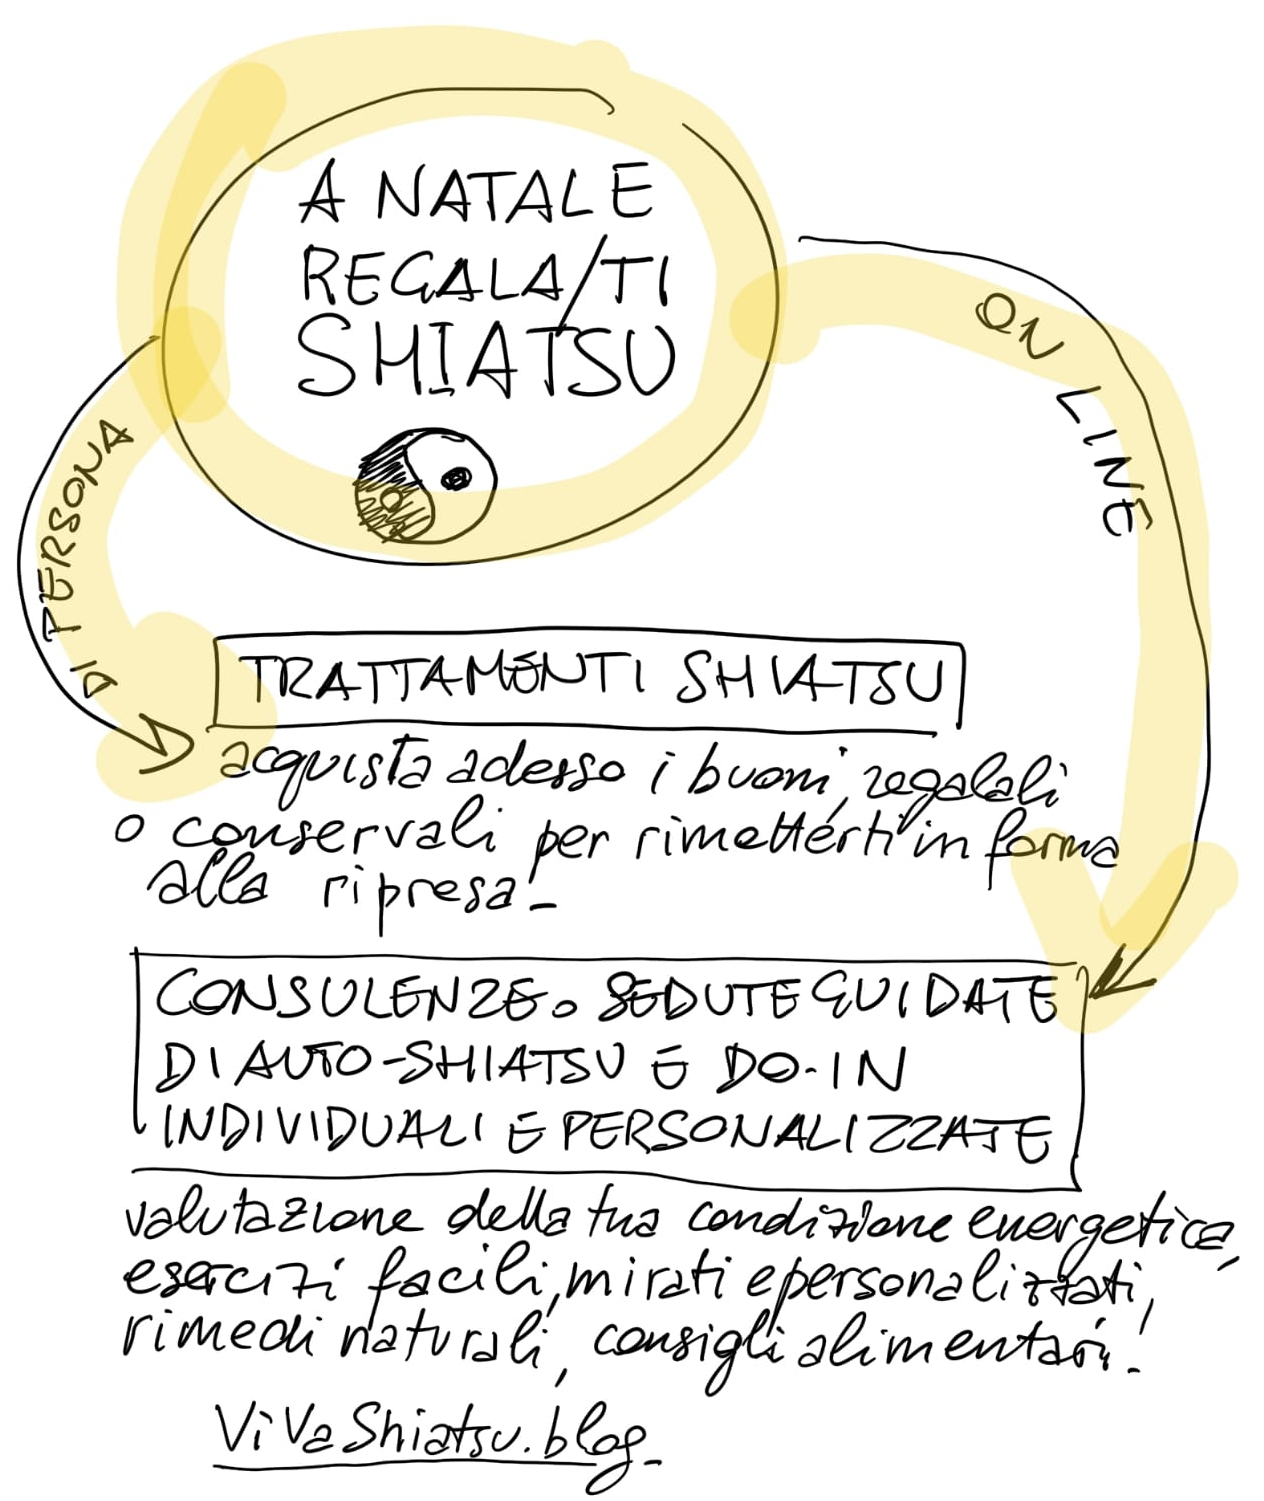 A NATALE
REGALA/TI
SHIATSU
DI PERSONA
ON LINE
TRATTAMENTI SHIATSU
acquista adesso i buoni, regalali
o conservali per rimetterti in forma
alla ripresa!
CONSULENZE o SEDUTE GUIDATE
DI AUTO-SHIATSU E DO-IN
INDIVIDUALI E PERSONALIZZATE
valutazione della tua condizione energetica,
esercizi facili, mirati e personalizzati,
rimedi naturali, consigli alimentari!
ViVaShiatsu.blog